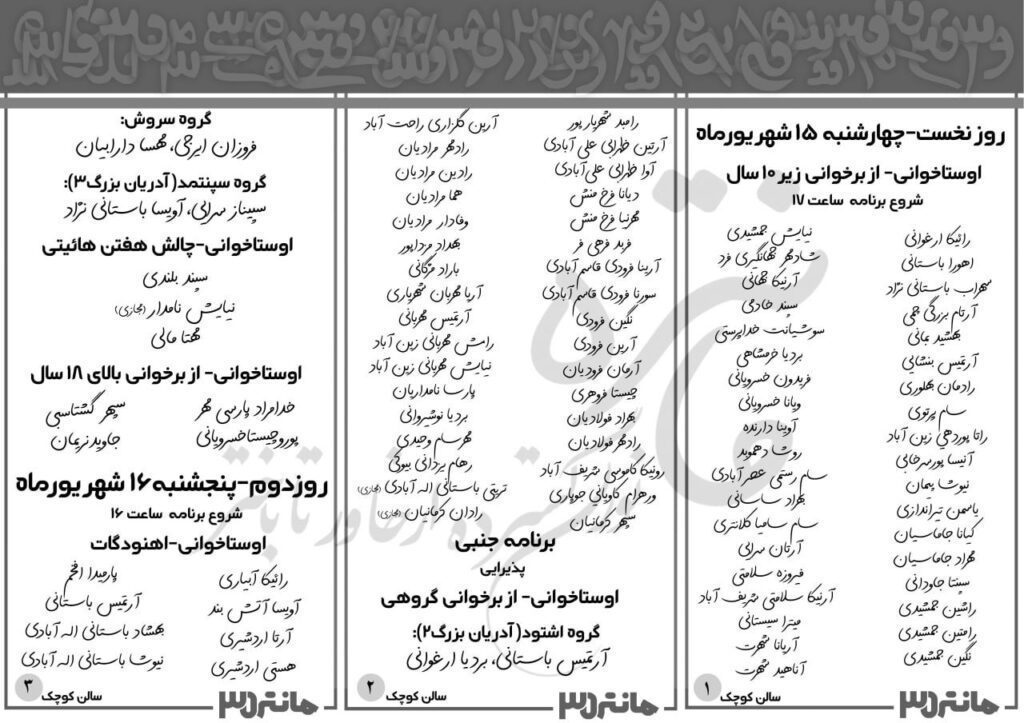 روز نخست-چهارشنبه ۱۵ شهریورماه
اوستاخوانی- از برخوانی زیر ۱۰ سال
شروع برنامه ساعت ۱۷
رائیکا ارغوانی
اهورا باستانی
سهراب باستانی نژاد
آرتام بزرگی جمی
بهشید بمانی
آرتمیس بنشائی
رادمان بهلوری
سام پرتوی
راتا پوردهی زین آباد
آنیسا پورسرخابی
نیوشا پیمان
یاسمن تیراندازی
کیانا جاماسیان
مهراد جاماسیان
سپنتا جاودانی
راشین جمشیدی
رامتین جمشیدی
نگین جمشیدی
نیایش جمشیدی
شادمهر جهانگیری فرد
آرنیکا جهانی
سپند خادمی
سوشیانت خداپرستی
بردیا خرمشاهی
فریدون خسرویانی
ویانا خسرویانی
آوینا دارنده
روشا دهموبد
سام رستمی عصرآبادی
بهراد ساسانی
سام سامیا کلانتری
آرتان سرابی
فیروزه سلامتی
آرنیکا سلامتی شریف آباد
میترا سیستانی
آریانا شهرت
آناهید شهرت
مانتره
سالن کوچک
۱
رامبد شهریارپور
آرتین ظهرابی علی آبادی
آوا ظهرابی علی‌آبادی
دیانا فرخ منش
مهرنیا فرخ منش
فربد فرهی فر
آرینا فرودی قاسم آبادی
سورنا فرودی قاسم آبادی
نگین فرودی
آرین فرودی
آرمان فرودیان
چیستا فروهری
بهراد فولادیان
رادمهر فولادیان
رونیکا کاموسی شریف آباد
ورهرام کاویانی جوپاری
سپهر کرمانیان
آرین گلزاری راحت آباد
رادمهر مرادیان
رادین مرادیان
هما مرادیان
وفادار مرادیان
بهداد مرداپور
باراد مژگانی
آریا مهربان شهریاری
آرتمیس مهربانی
رامش مهربانی زین آباد
نیایش مهربانی زین آباد
پارسا نامداریان
بردیا نوشیروانی
مهرسام وحیدی
رهام یزدانی بیوکی
ترینی باستانی اله آبادی (مجازی)
رادان کرمانیان (مجازی)
برنامه جنبی
پذیرایی
اوستاخوانی- از برخوانی گروهی
گروه اشتود( آدریان بزرگ۲):
آرتمیس باستانی، بردیا ارغوانی
مانتره
سالن کوچک
۲
گروه سروش:
فروزان ایرجی، مهسا دارابیان
گروه سپنتمد( آدریان بزرگ۳):
سپیناز سرابی، آویسا باستانی نژاد
اوستاخوانی-چالش هفتن هائیتی
سپند بلندی
نیایش نامدار (مجازی)
مهتا مالی
اوستاخوانی- از برخوانی بالای ۱۸ سال
خدامراد پارسی مهر
پوروچیستاخسرویانی
سپهر گشتاسبی
جاوید نریمان
روزدوم-پنجشنبه ۱۶ شهریورماه
شروع برنامه ساعت ۱۶
اوستاخوانی-اهنودگات
رائیکا آبیاری
آویسا آتش بند
آرتا اردشیری
هستی اردشیری
پارمیدا افخم
آرتمیس باستانی
بهشاد باستانی اله آبادی
نیوشا باستانی اله آبادی
مانتره
سالن کوچک
۳